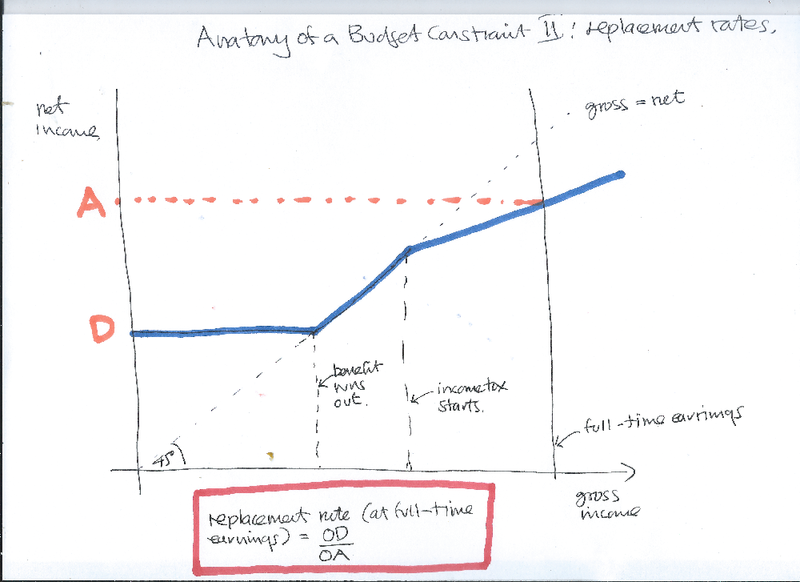 Anatomy of a Budget Constraint II: replacement rates.
net
income
gross = net
A
D
benefit
runs
out.
income tax
starts.
full-time earnings
45°
gross
income
replacement rate (at full-time
earnings) = OD
OA